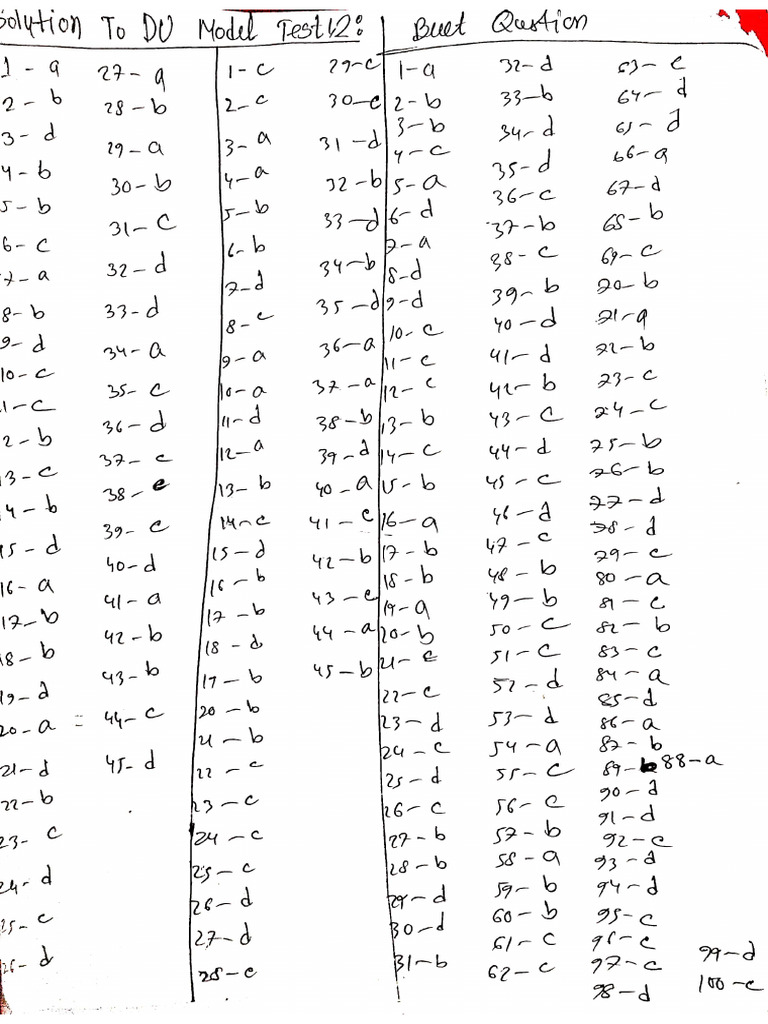 Solution To DU Model Test 12:
Buet Qustion
1 - a
2 - b
3 - d
4 - b
5 - b
6 - c
7 - a
8 - b
9 - d
10 - c
11 - c
12 - b
13 - c
14 - b
15 - d
16 - a
17 - b
18 - b
19 - d
20 - a
21 - d
22 - b
23 - c
24 - d
25 - c
26 - d
27 - a
28 - b
29 - a
30 - b
31 - c
32 - d
33 - d
34 - a
35 - c
36 - d
37 - c
38 - c
39 - c
40 - d
41 - a
42 - b
43 - b
44 - c
45 - d
1 - c
2 - c
3 - a
4 - a
5 - b
6 - b
7 - d
8 - c
9 - a
10 - a
11 - d
12 - a
13 - b
14 - c
15 - d
16 - b
17 - b
18 - d
19 - b
20 - b
21 - b
22 - c
23 - c
24 - c
25 - c
26 - d
27 - d
28 - c
29 - c
30 - c
31 - d
32 - b
33 - d
34 - b
35 - d
36 - a
37 - a
38 - b
39 - d
40 - a
41 - c
42 - b
43 - c
44 - a
45 - b
1 - a
2 - b
3 - b
4 - c
5 - a
6 - d
7 - a
8 - d
9 - d
10 - c
11 - c
12 - c
13 - b
14 - c
15 - b
16 - a
17 - b
18 - b
19 - a
20 - b
21 - c
22 - c
23 - d
24 - c
25 - d
26 - c
27 - b
28 - b
29 - d
30 - d
31 - b
32 - d
33 - b
34 - d
35 - d
36 - c
37 - b
38 - c
39 - b
40 - d
41 - d
42 - b
43 - c
44 - d
45 - c
46 - d
47 - c
48 - b
49 - b
50 - c
51 - c
52 - d
53 - d
54 - a
55 - c
56 - c
57 - b
58 - a
59 - b
60 - b
61 - c
62 - c
63 - c
64 - d
65 - d
66 - a
67 - d
68 - b
69 - c
70 - b
71 - a
72 - b
73 - c
74 - c
75 - b
76 - b
77 - d
78 - d
79 - c
80 - a
81 - c
82 - b
83 - c
84 - a
85 - d
86 - a
87 - b
89 - b 88 - a
90 - d
91 - d
92 - c
93 - d
94 - d
95 - c
96 - c
97 - c
98 - d
99 - d
100 - c